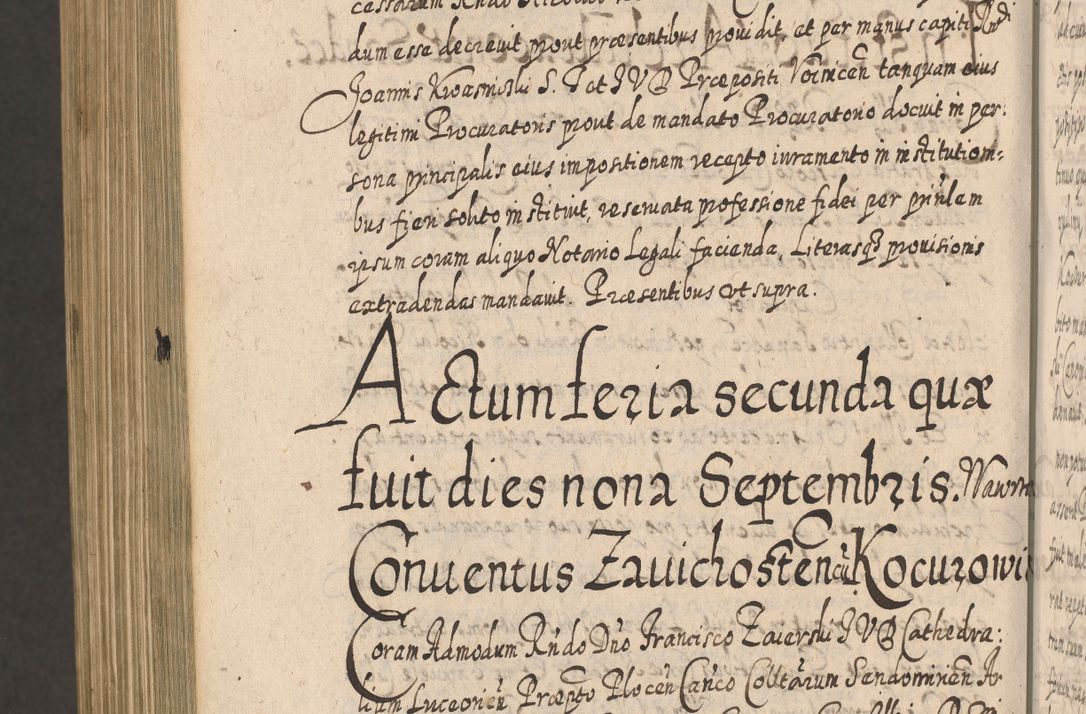 dum esse decrevit prout præsentibus providit, et per manus capiti Rñdi
Joannis Kwasnicki S. T et J V D Præpositi Voinicen̄ tanquam eius
legitimi Procuratoris prout de mandato Procuratorio docuit in per:
sona principalis eius impositionem recepto iuramento in institution=
bus fieri solito instituit, reservata professione fidei per prin̄lem
ipsum coram aliquo Notario Legali facienda, Literasq₃ provisionis
extradendas mandavit. Præsentibus ut supra.
Actum feria secunda quæ
fuit dies nona Septembris.
Conventus Zavichosten̄ cū Kocurowi
Coram Admodum Rn̄do Dn̄o Francisco Zaierski J V D Cathedra:
lium Luceorien̄ Præpto Plocen̄ Can̄co Colltārum Sandomirien̄ Ar